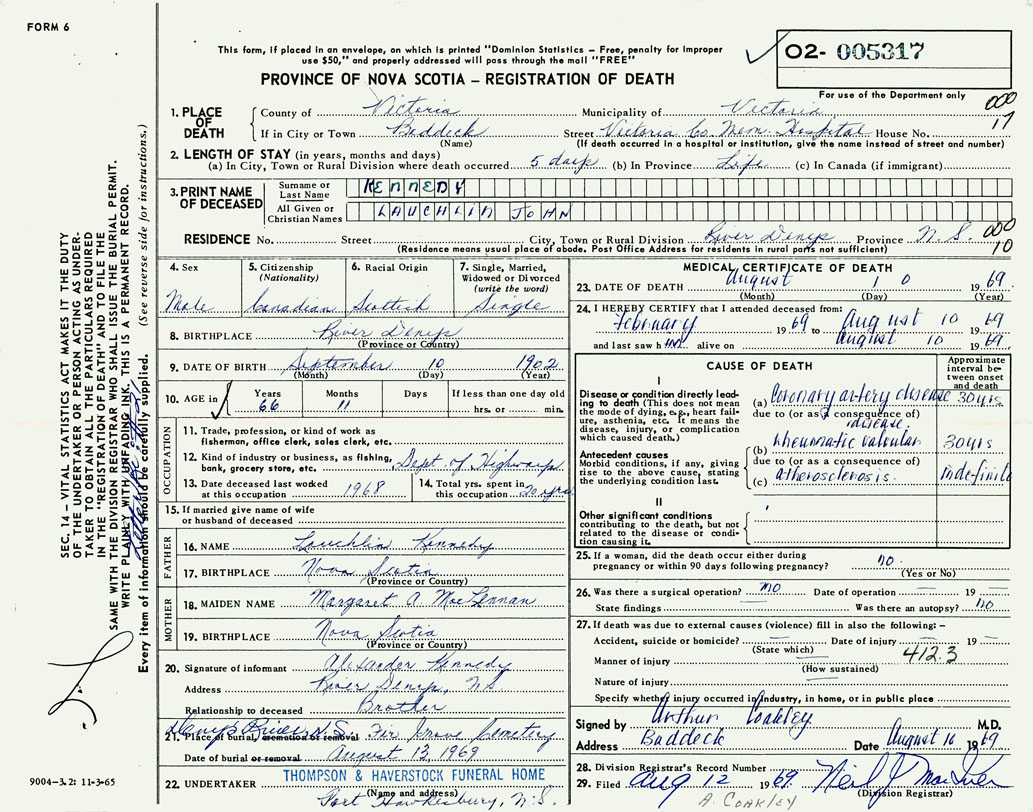 FORM 6
This form, if placed in an envelope, on which is printed "Dominion Statistics – Free, penalty for improper
use $50," and properly addressed will pass through the mail "FREE"
PROVINCE OF NOVA SCOTIA – REGISTRATION OF DEATH
O2- 005317
For use of the Department only
000
17
1. PLACE OF DEATH
County of Victoria Municipality of Victoria
If in City or Town Baddeck Street Victoria Co. Mem. Hospital House No.
(Name) (If death occurred in a hospital or institution, give the name instead of street and number)
2. LENGTH OF STAY (in years, months and days)
(a) In City, Town or Rural Division where death occurred 5 days (b) In Province Life (c) In Canada (if immigrant)
3. PRINT NAME OF DECEASED
Surname or Last Name KENNEDY
All Given or Christian Names LAUCHLIN JOHN
000
10
RESIDENCE No. Street City, Town or Rural Division River Denys Province N.S.
(Residence means usual place of abode. Post Office Address for residents in rural parts not sufficient)
4. Sex Male
5. Citizenship (Nationality) Canadian
6. Racial Origin Scottish
7. Single, Married, Widowed or Divorced (write the word) Single
8. BIRTHPLACE River Denys
(Province or Country)
9. DATE OF BIRTH September 10 1902
(Month) (Day) (Year)
10. AGE in Years 66 Months 11 Days If less than one day old hrs. or min.
OCCUPATION
11. Trade, profession, or kind of work as
fisherman, office clerk, sales clerk, etc.
12. Kind of industry or business, as fishing,
bank, grocery store, etc. Dept. of Highways
13. Date deceased last worked
at this occupation 1968
14. Total yrs. spent in
this occupation 20 yrs
15. If married give name of wife
or husband of deceased
FATHER
16. NAME Lauchlin Kennedy
17. BIRTHPLACE Nova Scotia
(Province or Country)
MOTHER
18. MAIDEN NAME Margaret A MacLennan
19. BIRTHPLACE Nova Scotia
(Province or Country)
20. Signature of informant Alexander Kennedy
Address River Denys, NS
Relationship to deceased Brother
21. Place of burial, cremation or removal Denys River N.S. Fir Grove Cemetery
Date of burial or removal August 12, 1969
22. UNDERTAKER THOMPSON & HAVERSTOCK FUNERAL HOME
(Name and address)
Port Hawkesbury, N.S.
MEDICAL CERTIFICATE OF DEATH
23. DATE OF DEATH August 10 1969
(Month) (Day) (Year)
24. I HEREBY CERTIFY that I attended deceased from:
February 1969 to August 10 1969
and last saw him alive on August 10 1969.
CAUSE OF DEATH
Approximate interval between onset and death
I
Disease or condition directly leading to death (This does not
mean the mode of dying, e.g., heart failure, asthenia, etc. It means the
disease, injury, or complication which caused death.)
(a) Coronary artery disease 30 yrs
due to (or as a consequence of)
disease.
(b) rheumatic valvular 30 yrs
Antecedent causes
Morbid conditions, if any, giving
rise to the above cause, stating
the underlying condition last.
due to (or as a consequence of)
(c) atherosclerosis. indefinite
II
Other significant conditions
contributing to the death, but not
related to the disease or condition causing it.
25. If a woman, did the death occur either during
pregnancy or within 90 days following pregnancy? no.
(Yes or No)
26. Was there a surgical operation? no Date of operation — 19 —
State findings Was there an autopsy? no
27. If death was due to external causes (violence) fill in also the following: –
Accident, suicide or homicide? — Date of injury — 19 —
(State which) 412.3
Manner of injury —
(How sustained)
Nature of injury —
Specify whether injury occurred in industry, in home, or in public place
Signed by Arthur Coakley M.D.
Address Baddeck Date August 10 1969.
28. Division Registrar's Record Number
29. Filed Aug 12 1969. Neil J MacIver
(Division Registrar)
A. COAKLEY
SEC. 14 – VITAL STATISTICS ACT MAKES IT THE DUTY
OF THE UNDERTAKER OR PERSON ACTING AS UNDER-
TAKER TO OBTAIN ALL THE PARTICULARS REQUIRED
IN THE "REGISTRATION OF DEATH" AND TO FILE THE
SAME WITH THE DIVISION REGISTRAR WHO SHALL ISSUE THE BURIAL PERMIT.
WRITE PLAINLY WITH UNFADING INK. THIS IS A PERMANENT RECORD.
Every item of information should be carefully supplied. (See reverse side for instructions.)
9004–3.2: 11-3-65